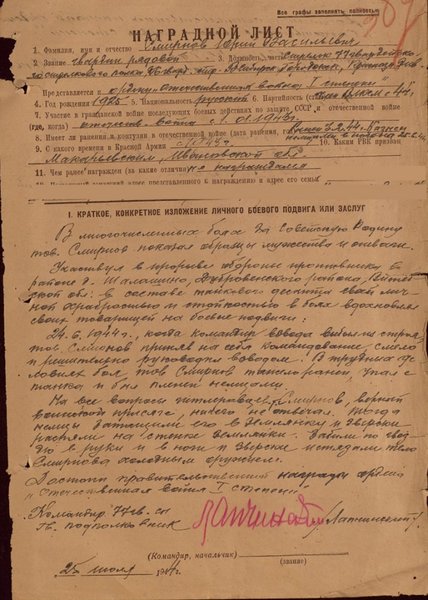 Все графы заполнять полностью
НАГРАДНОЙ ЛИСТ
1. Фамилия, имя и отчество Смирнов Юрий Васильевич
2. Звание Гвардии рядовой 3. Должность, часть Стрелок 77 гвардейского
стрелкового полка 26 гвард.
Представляется к ордену „Отечественная война I степени"
4. Год рождения 1925 5. Национальность русский 6. Партийность
7. Участие в гражданской войне, последующих боевых действиях по защите СССР и отечественной войне
(где, когда) отечеств. война с 1943г.
8. Имеет ли ранения и контузии в отечественной войне
9. С какого времени в Красной Армии 1943г. 10. Каким РВК призван
Макарьевским, Ивановской обл.
11. Чем ранее награжден (за какие отличия) не награждался
I. КРАТКОЕ, КОНКРЕТНОЕ ИЗЛОЖЕНИЕ ЛИЧНОГО БОЕВОГО ПОДВИГА ИЛИ ЗАСЛУГ
В многочисленных боях за Советскую Родину
тов. Смирнов показал образцы мужества и отваги.
Участвуя в прорыве обороны противника в
районе д. Шалашино, Дубровенского района, Витеб-
ской обл. в составе танкового десанта своей лич-
ной храбростью и стойкостью в боях вдохновлял
своих товарищей на боевые подвиги.
24.6.1944г. когда командир взвода выбыл из строя
тов. Смирнов принял на себя командование, смело
и решительно руководил взводом. В трудных ус-
ловиях боя тов. Смирнов тяжело ранен, упал с
танка и был пленен немцами.
На все вопросы гитлеровцев Смирнов, верный
воинской присяге, ничего не отвечал. Тогда
немцы затащили его в землянку и зверски
распяли на стенке землянки. Забили по гвоз-
дю в руки и в ноги и зверски истязали тело
Смирнова холодным оружием.
Достоин правительственной награды орден
„Отечественная война I степени".
Командир 77 гв. сп
Гв. подполковник
(Командир, начальник) (звание)
25 июля 1944г.